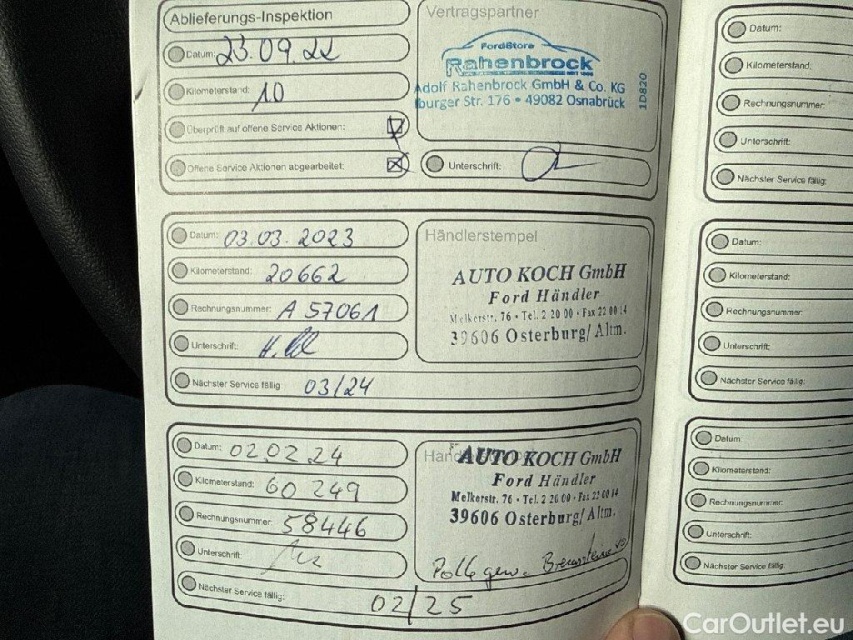 Ablieferungs-Inspektion
Datum: 23.09.22
Kilometerstand: 10
Überprüft auf offene Service Aktionen:
Offene Service Aktionen abgearbeitet:
Vertragspartner
FordStore
Rahenbrock
Adolf Rahenbrock GmbH & Co. KG
burger Str. 176 • 49082 Osnabrück
1D820
Unterschrift:
Datum: 03.03.2023
Kilometerstand: 20662
Rechnungsnummer: A 57061
Unterschrift:
Nächster Service fällig 03/24
Händlerstempel
AUTO KOCH GmbH
Ford Händler
Melkerstr. 76 • Tel. 2 20 00 • Fax 22 00 14
39606 Osterburg/Altm.
Datum: 02.02.24
Kilometerstand: 60 249
Rechnungsnummer: 58446
Unterschrift:
Nächster Service fällig: 02/25
AUTO KOCH GmbH
Ford Händler
Melkerstr. 76 • Tel. 2 20 00 • Fax 22 00 14
39606 Osterburg/Altm.
Datum:
Kilometerstand:
Rechnungsnummer:
Unterschrift:
Nächster Service fällig:
Datum:
Kilometerstand:
Rechnungsnummer:
Unterschrift:
Nächster Service fällig:
Datum
Kilometerstand:
Rechnungsnummer:
Unterschrift:
Nächster Service fällig:
CarOutlet.eu